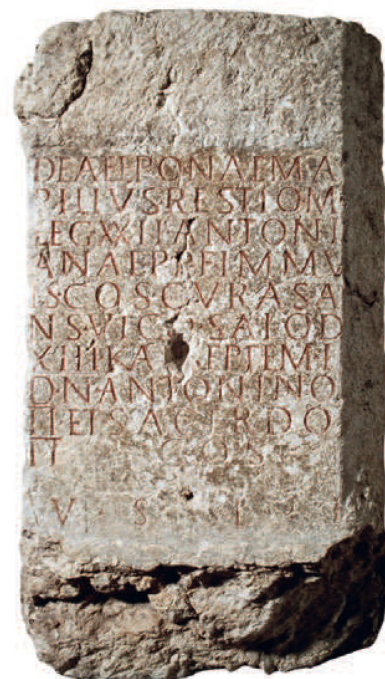 DEAEEPONAEMA
PILIVSRESTIOM
LEGXXIIANTONI
ANAEPPFIMMV
ISCOSCVRASA
NSVICOSALOD
XIIIIKA EPTEMI
DNANTONINO
IIETSACERDO
II COS
V S L